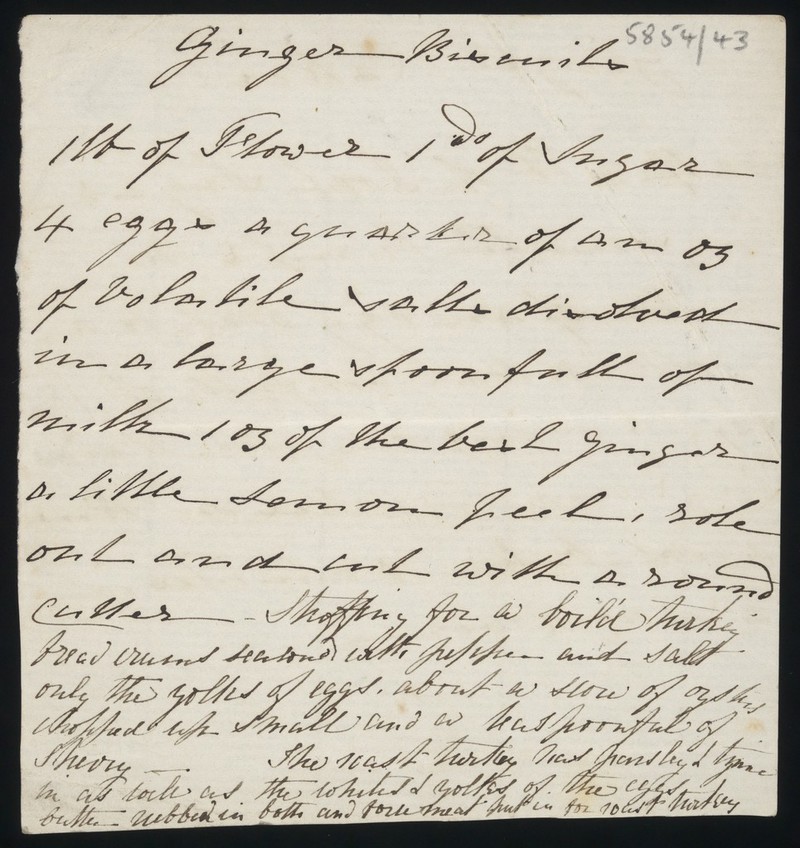 5854/43
Ginger Biscuits
1 lb of Flower 1 do of Sugar
4 eggs a quarter of an oz
of Volatile salts disolved
in a large spoonfull of
milk 1 oz of the best ginger
a little Lemon peel, role
out and cut with a round
cutter - Stuffing for a boild turkey
bread crums seasond with pepper and salt
only the yolks of eggs. about a score of oysters
chopped up small and a teaspoonful of
Sherry The roast turkey has parsley & tyme
in as well as the whites & yolks of the eggs
butter rubbed in both and force meat put in for roast turkey